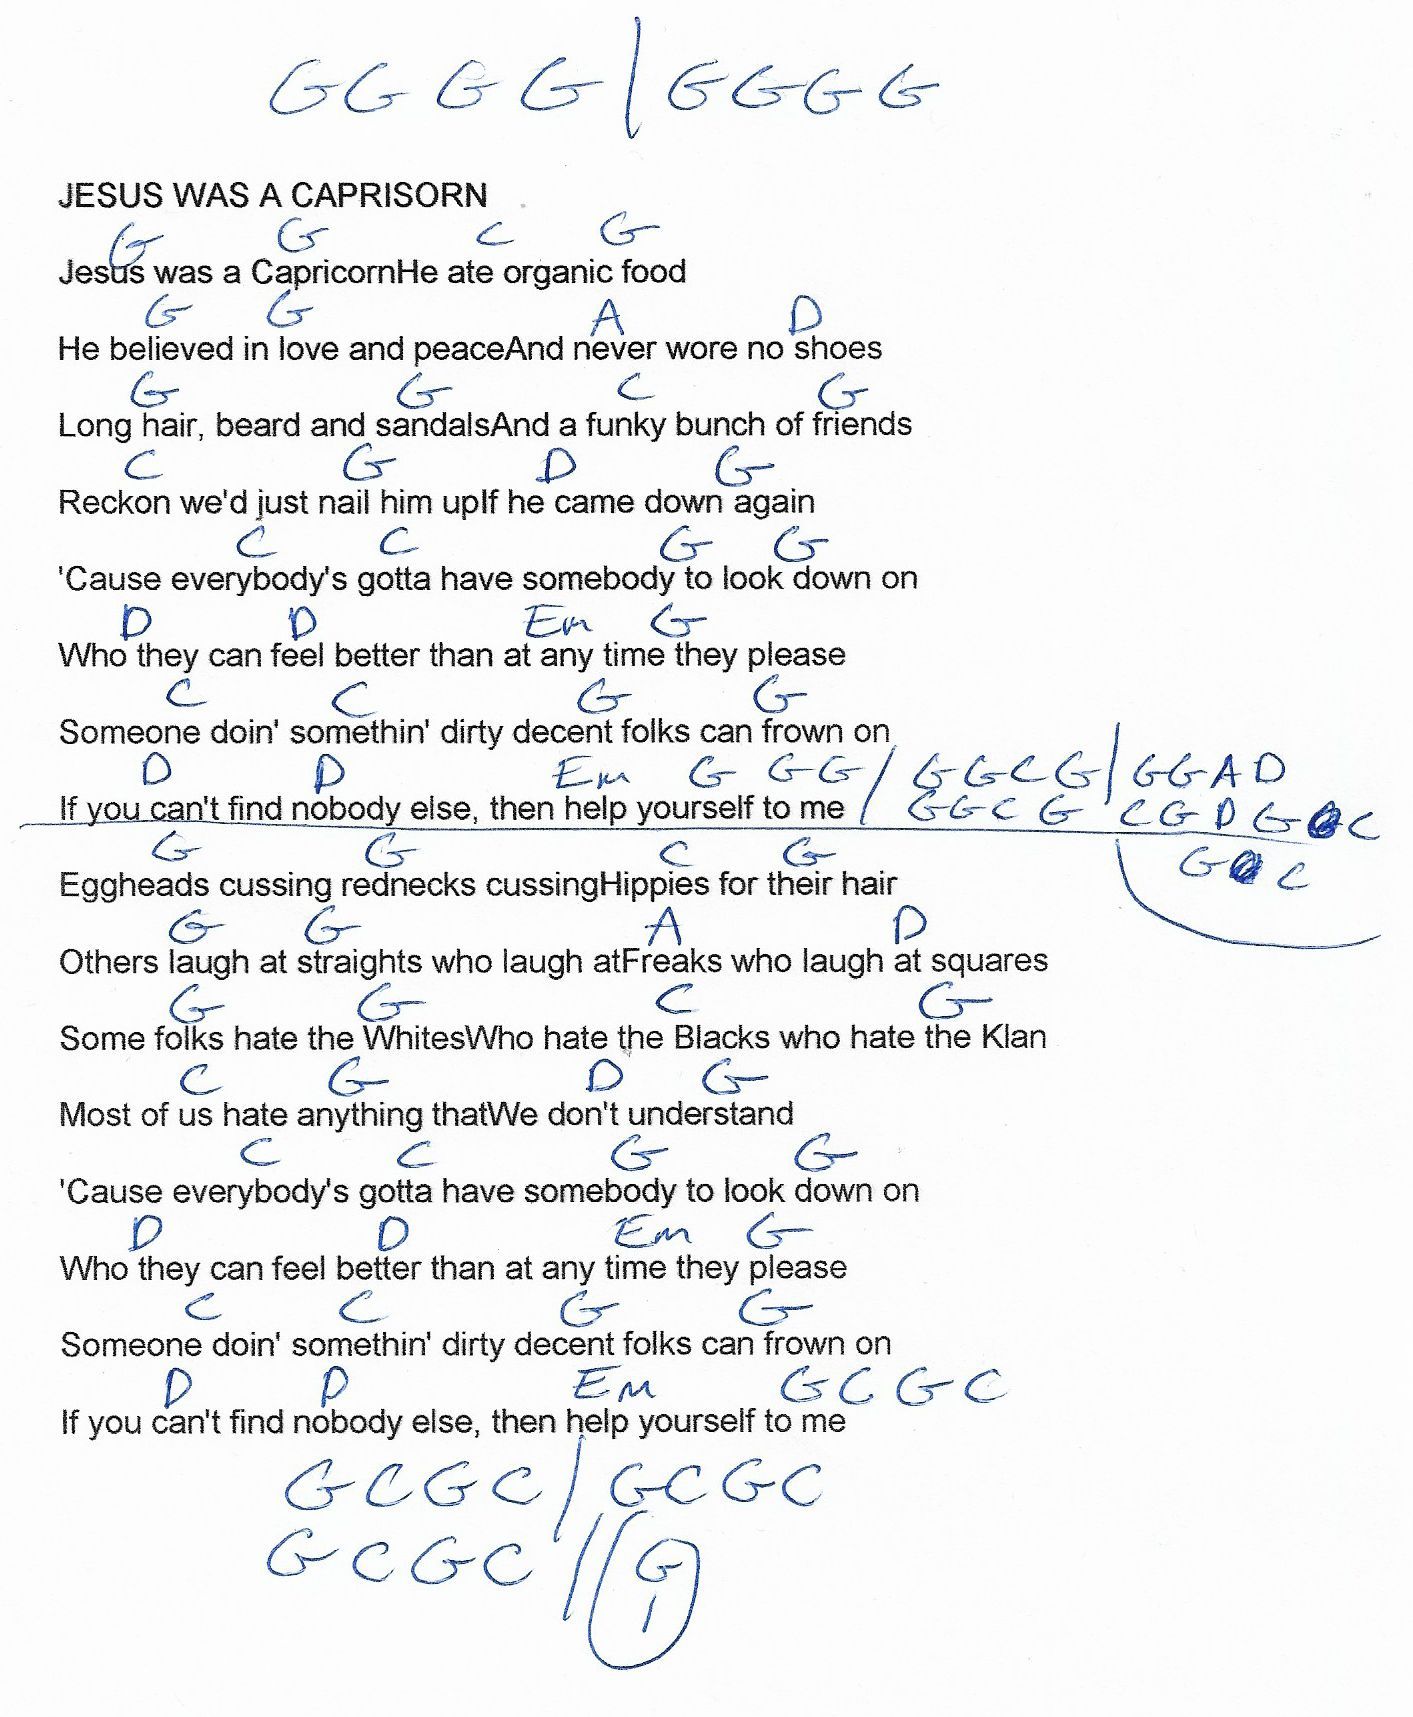 G G G G | G G G G
JESUS WAS A CAPRISORN
G G C G
Jesus was a CapricornHe ate organic food
G G A D
He believed in love and peaceAnd never wore no shoes
G G C G
Long hair, beard and sandalsAnd a funky bunch of friends
C G D G
Reckon we'd just nail him upIf he came down again
C C G G
'Cause everybody's gotta have somebody to look down on
D D Em G
Who they can feel better than at any time they please
C C G G
Someone doin' somethin' dirty decent folks can frown on
D D Em G G G / G G C G | G G A D
If you can't find nobody else, then help yourself to me / G G C G C G D G C
G C
G G C G
Eggheads cussing rednecks cussingHippies for their hair
G G A D
Others laugh at straights who laugh atFreaks who laugh at squares
G G C G
Some folks hate the WhitesWho hate the Blacks who hate the Klan
C G D G
Most of us hate anything thatWe don't understand
C C G G
'Cause everybody's gotta have somebody to look down on
D D Em G
Who they can feel better than at any time they please
C C G G
Someone doin' somethin' dirty decent folks can frown on
D D Em G C G C
If you can't find nobody else, then help yourself to me
G C G C / G C G C
G C G C // G
1